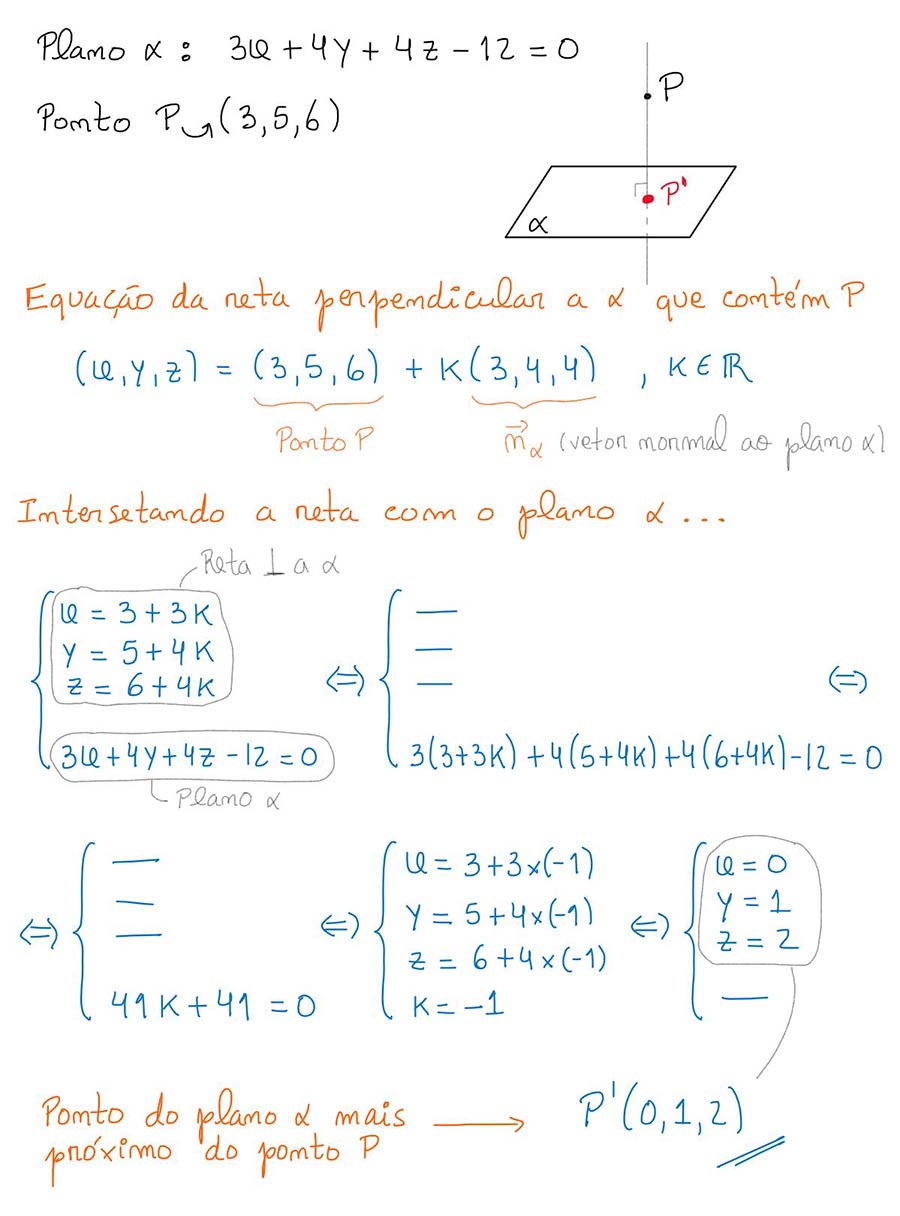 Plano α : 3x + 4y + 4z - 12 = 0
Ponto P ↝ (3, 5, 6)
P
P'
α
Equação da reta perpendicular a α que contém P
(x, y, z) = (3, 5, 6) + K(3, 4, 4) , K ∈ ℝ
Ponto P
n⃗α (vetor normal ao plano α)
Intersetando a reta com o plano α ...
Reta ⊥ a α
{ x = 3 + 3K
y = 5 + 4K
z = 6 + 4K
3x + 4y + 4z - 12 = 0
Plano α
⇔ { —
—
—
3(3+3K) + 4(5+4K) + 4(6+4K) - 12 = 0
⇔
⇔ { —
—
—
41K + 41 = 0
⇔ { x = 3 + 3×(-1)
y = 5 + 4×(-1)
z = 6 + 4×(-1)
K = -1
⇔ { x = 0
y = 1
z = 2
—
Ponto do plano α mais
próximo do ponto P
⟶ P'(0, 1, 2)